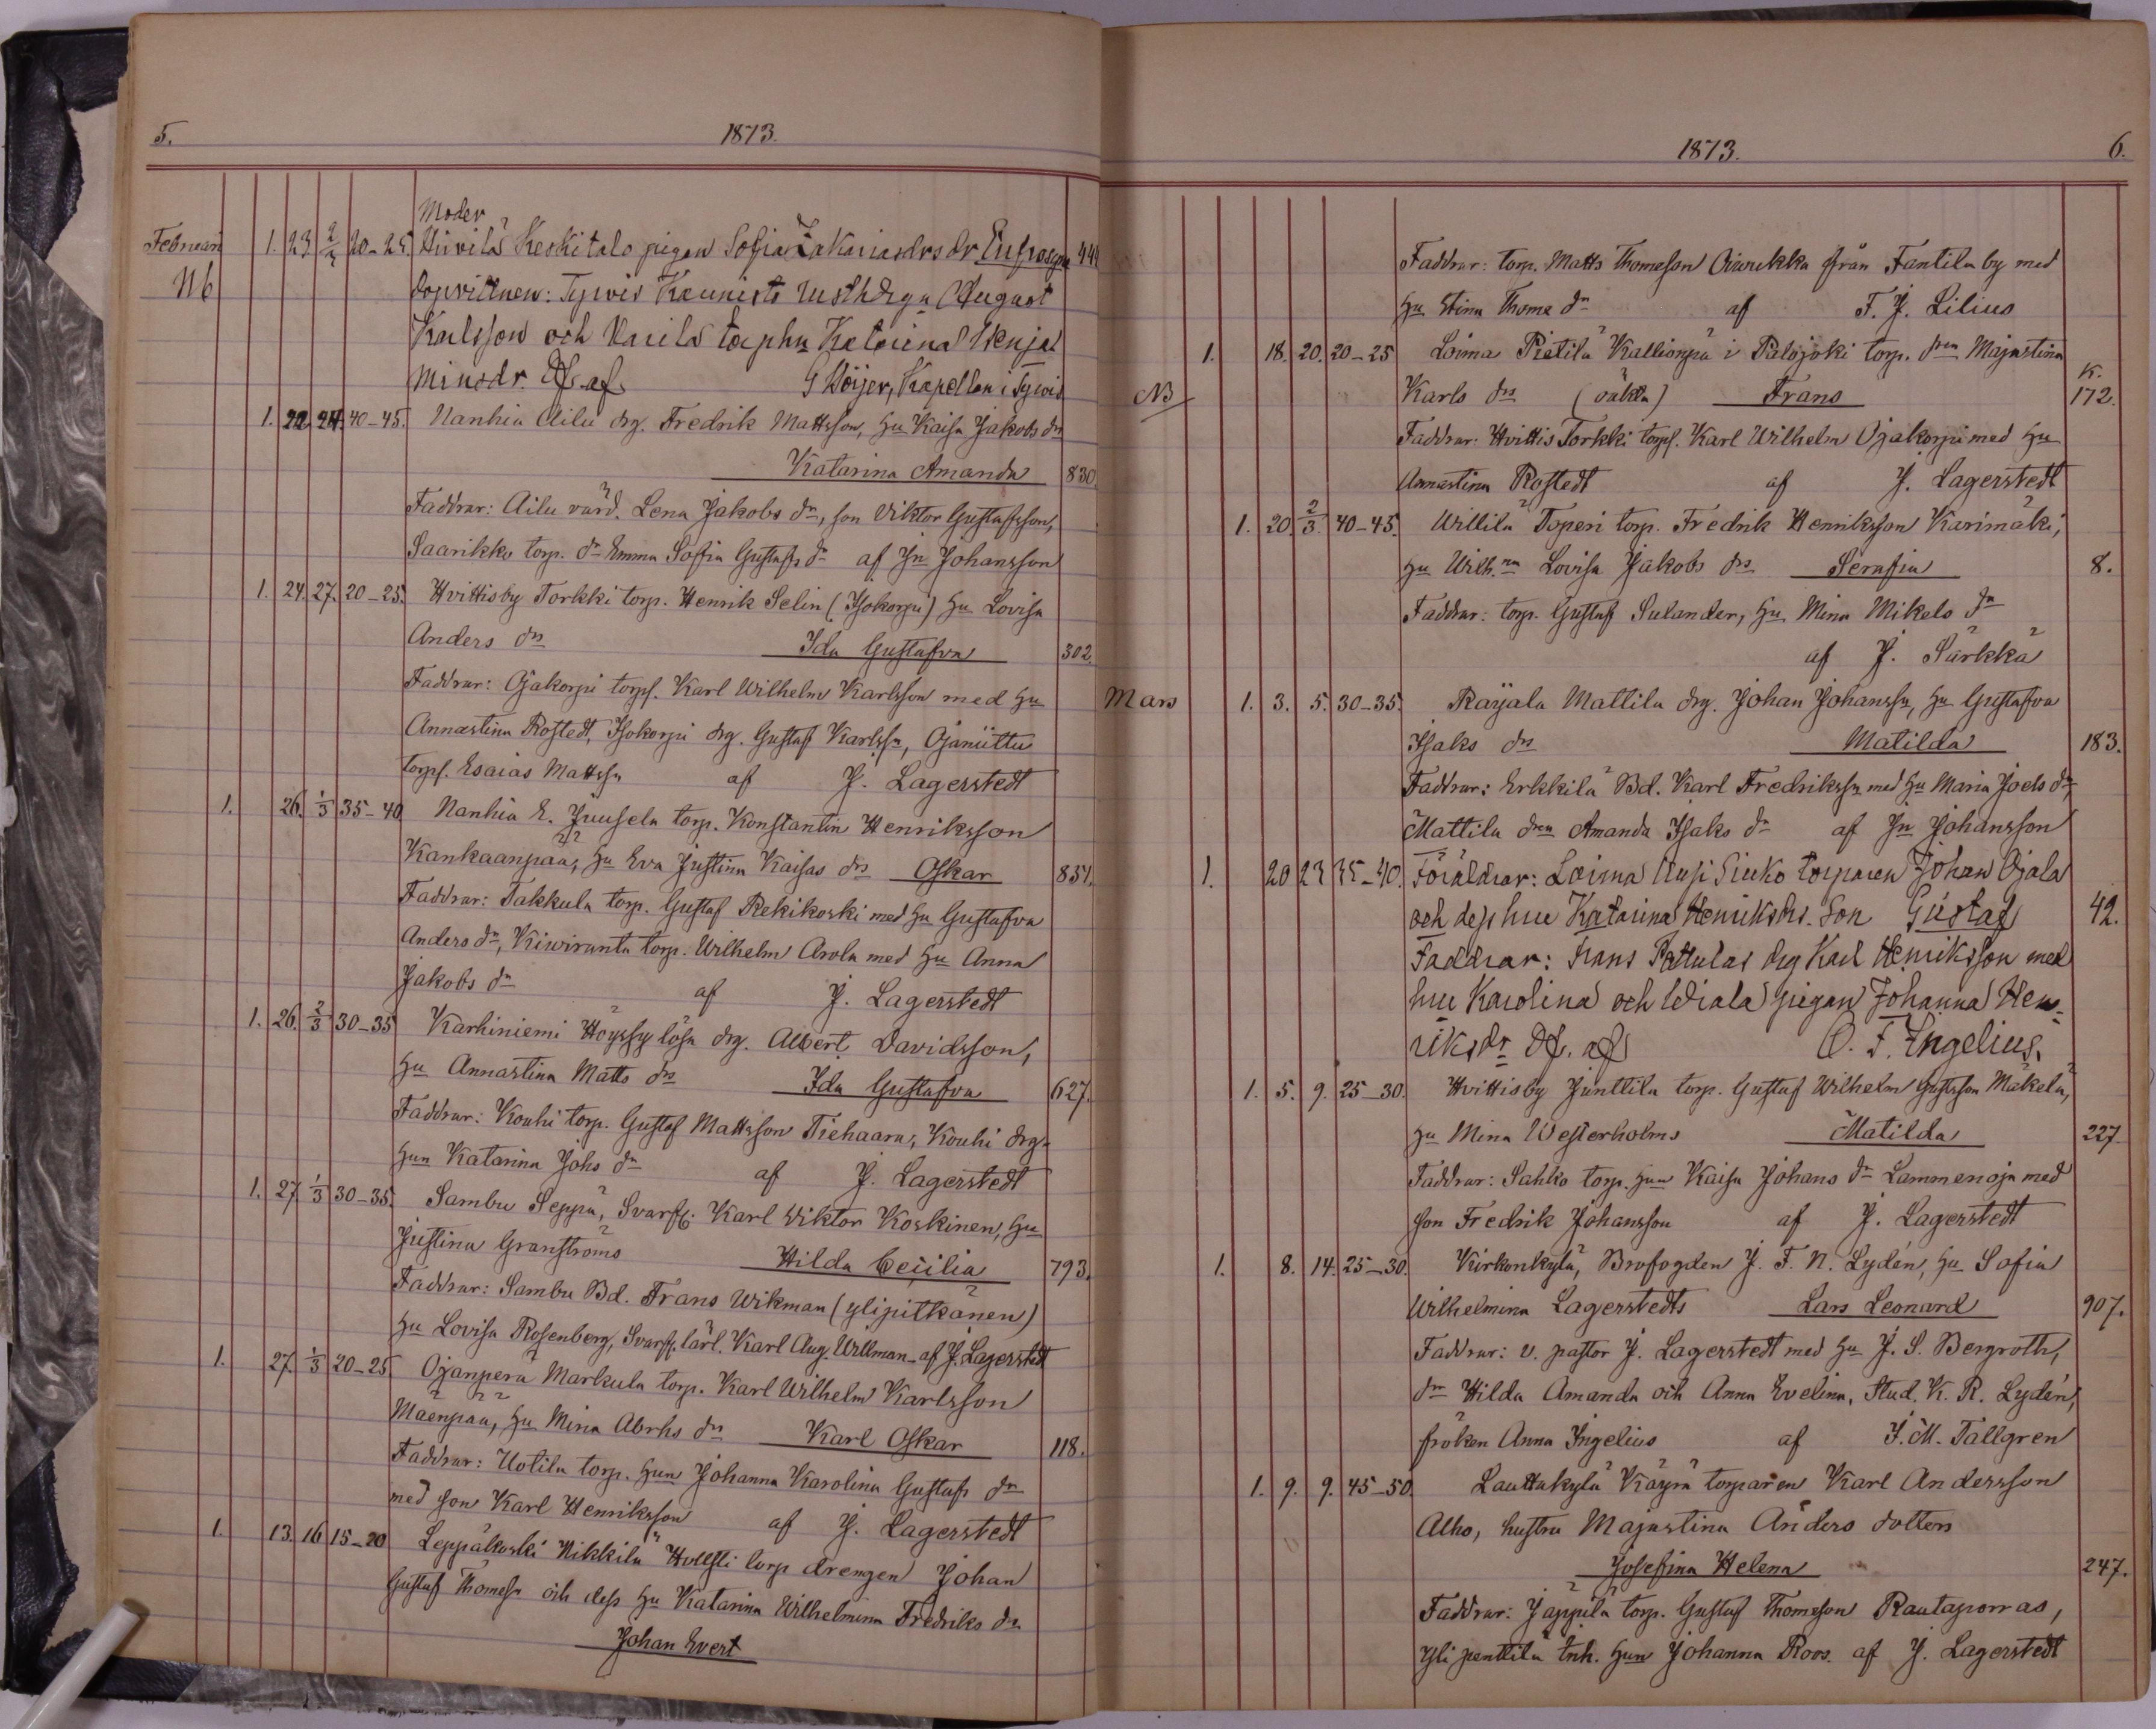 5. 1873.
Moder
Februari 1. 23 2/3 20-25. Hurila Keskitalo pigan Sofia Zakariasdrs dr Eufrosyne 444
Nb dopvittnen: Tyrvis Kaunisto rusthdrgn August
Karlsson och Karila torphu Katarina Benja-
minsdr. Df. af G Höijer, Kapellan i Tyrvis
1. 22 24. 40-45. Nanhia Ailu drg. Fredrik Mattsson, hu Kaisa Jakobs drs
Katarina Amanda 830.
Faddrar: Ailu värd. Lena Jakobs dr, son Viktor Gustafsson,
Saarikko torp. dr Emma Sofia Gustafs dr af Jn Johansson
1. 24. 27. 20-25. Hvittisby Torkki torp. Henrik Selin (Isokorpi) hu Lovisa
Anders drs Ida Gustafva 302.
Faddrar: Ojakorpi torpf. Karl Wilhelm Karlsson med hu
Annastina Rostedt, Isokorpi drg. Gustaf Karlssn, Ojaniittu
torpf. Esaias Mattssn af J. Lagerstedt
1. 26. 1/3 35-40 Nanhia E. Juusela torp. Konstantin Henriksson
Kankaanpää, hu Eva Justina Kaisas drs Oskar 851.
Faddrar: Takkula torp. Gustaf Rekikoski med hu Gustafva
Anders dr, Kiviranta torp. Wilhelm Arola med hu Anna
Jakobs dr af J. Lagerstedt
1. 26. 2/3 30-35 Karhiniemi Höyssylösa drg. Albert Davidsson,
hu Annastina Matts drs Ida Gustafva 627.
Faddrar: Kouhi torp. Gustaf Mattsson Tiehaara, Kouhi drg.
hun Katarina Johs dr af J. Lagerstedt
1. 27 1/3 30-35. Sambu Seppä, Svarff. Karl Viktor Koskinen, hu
Justina Granströms Hilda Cecilia 793.
Faddrar: Sambu Bd. Frans Wikman (ylipitkänen)
hu Lovisa Rosenberg, Svarff. lärl. Karl Aug. Willman af J. Lagerstedt
1. 27. 1/3 20-25 Ojanperä Markula torp. Karl Wilhelm Karlsson
Mäenpää, hu Mina Abrhs drs Karl Oskar 118.
Faddrar: Uotila torp. hun Johanna Karolina Gustafs dr
med son Karl Henriksson af J. Lagerstedt
1. 13. 16 15-20 Leppäkoski Nikkilä torp drengen Johan
Gustaf Thomesn och dess hu Katarina Wilhelmina Fredriks drs
Johan Evert
1873. 6.
Faddrar: torp. Matts Thomesson Oinukka från Fantila by med
hu Stina Thoma dr af F. J. Lilius
1. 18. 20. 20-25 Loima Pietilä Kallionpä i Palojoki torp. drn Majastina
NB Karls drs (oäkta) Frans K. 172.
Faddrar: Hvittis Torkki torpf. Karl Wilhelm Ojakorpi med hu
Annastina Rostedt af J. Lagerstedt
1. 20. 2/3. 40-45. Willilä Toperi torp. Fredrik Henriksson Karimäki,
hu Wilh.na Lovisa Jakobs drs Serafia 8.
Faddrar: torp. Gustaf Sulander, hu Mina Mikels dr
af J. Särkkä
Mars 1. 3. 5. 30-35. Raijala Mattila drg. Johan Johanssn, hu Gustafva
Isaks drs Matilda 183.
Faddrar: Erkkilä Bd. Karl Fredrikssn med hu Maria Joels dr,
Mattila drn Amanda Isaks dr af Jn Johansson
1. 20 23 35-40. Föräldrar: Loima Uusi Sieko torparen Johan Ojala
och dess hu Katarina Henriksdrs. Son Gustaf 42.
Faddrar: Frans Pattulas drg Karl Henriksson med
hu Karolina och Wiala pigan Johanna Hen-
riksdr Df. af O. F. Ingelius.
1. 5. 9. 25-30. Hvittisby Junttila torp. Gustaf Wilhelm Gustsson Mäkelä,
hu Mina Westerholms Matilda 227.
Faddrar: Sahko torp. hun Kaisa Johans dr Lammenoja med
son Fredrik Johansson af J. Lagerstedt
1. 8. 14. 25-30. Kirkonkylä, Brofogden J. F. N. Lydén, hu Sofia
Wilhelmina Lagerstedts Lars Leonard 907.
Faddrar: v. pastor J. Lagerstedt med hu J. S. Bergroth,
drn Hilda Amanda och Anna Evelina, Stud. K. R. Lydén,
fröken Anna Ingelius af J. M. Tallgren
1. 9. 9. 45-50. Lauttakylä Käyrä torparen Karl Andersson
Alho, hustru Majastina Anders dotters
Josefina Helena 247.
Faddrar: Jäppilä torp. Gustaf Thomesson Rautaporras,
Yli penttilä inh. hun Johanna Roos. af J. Lagerstedt